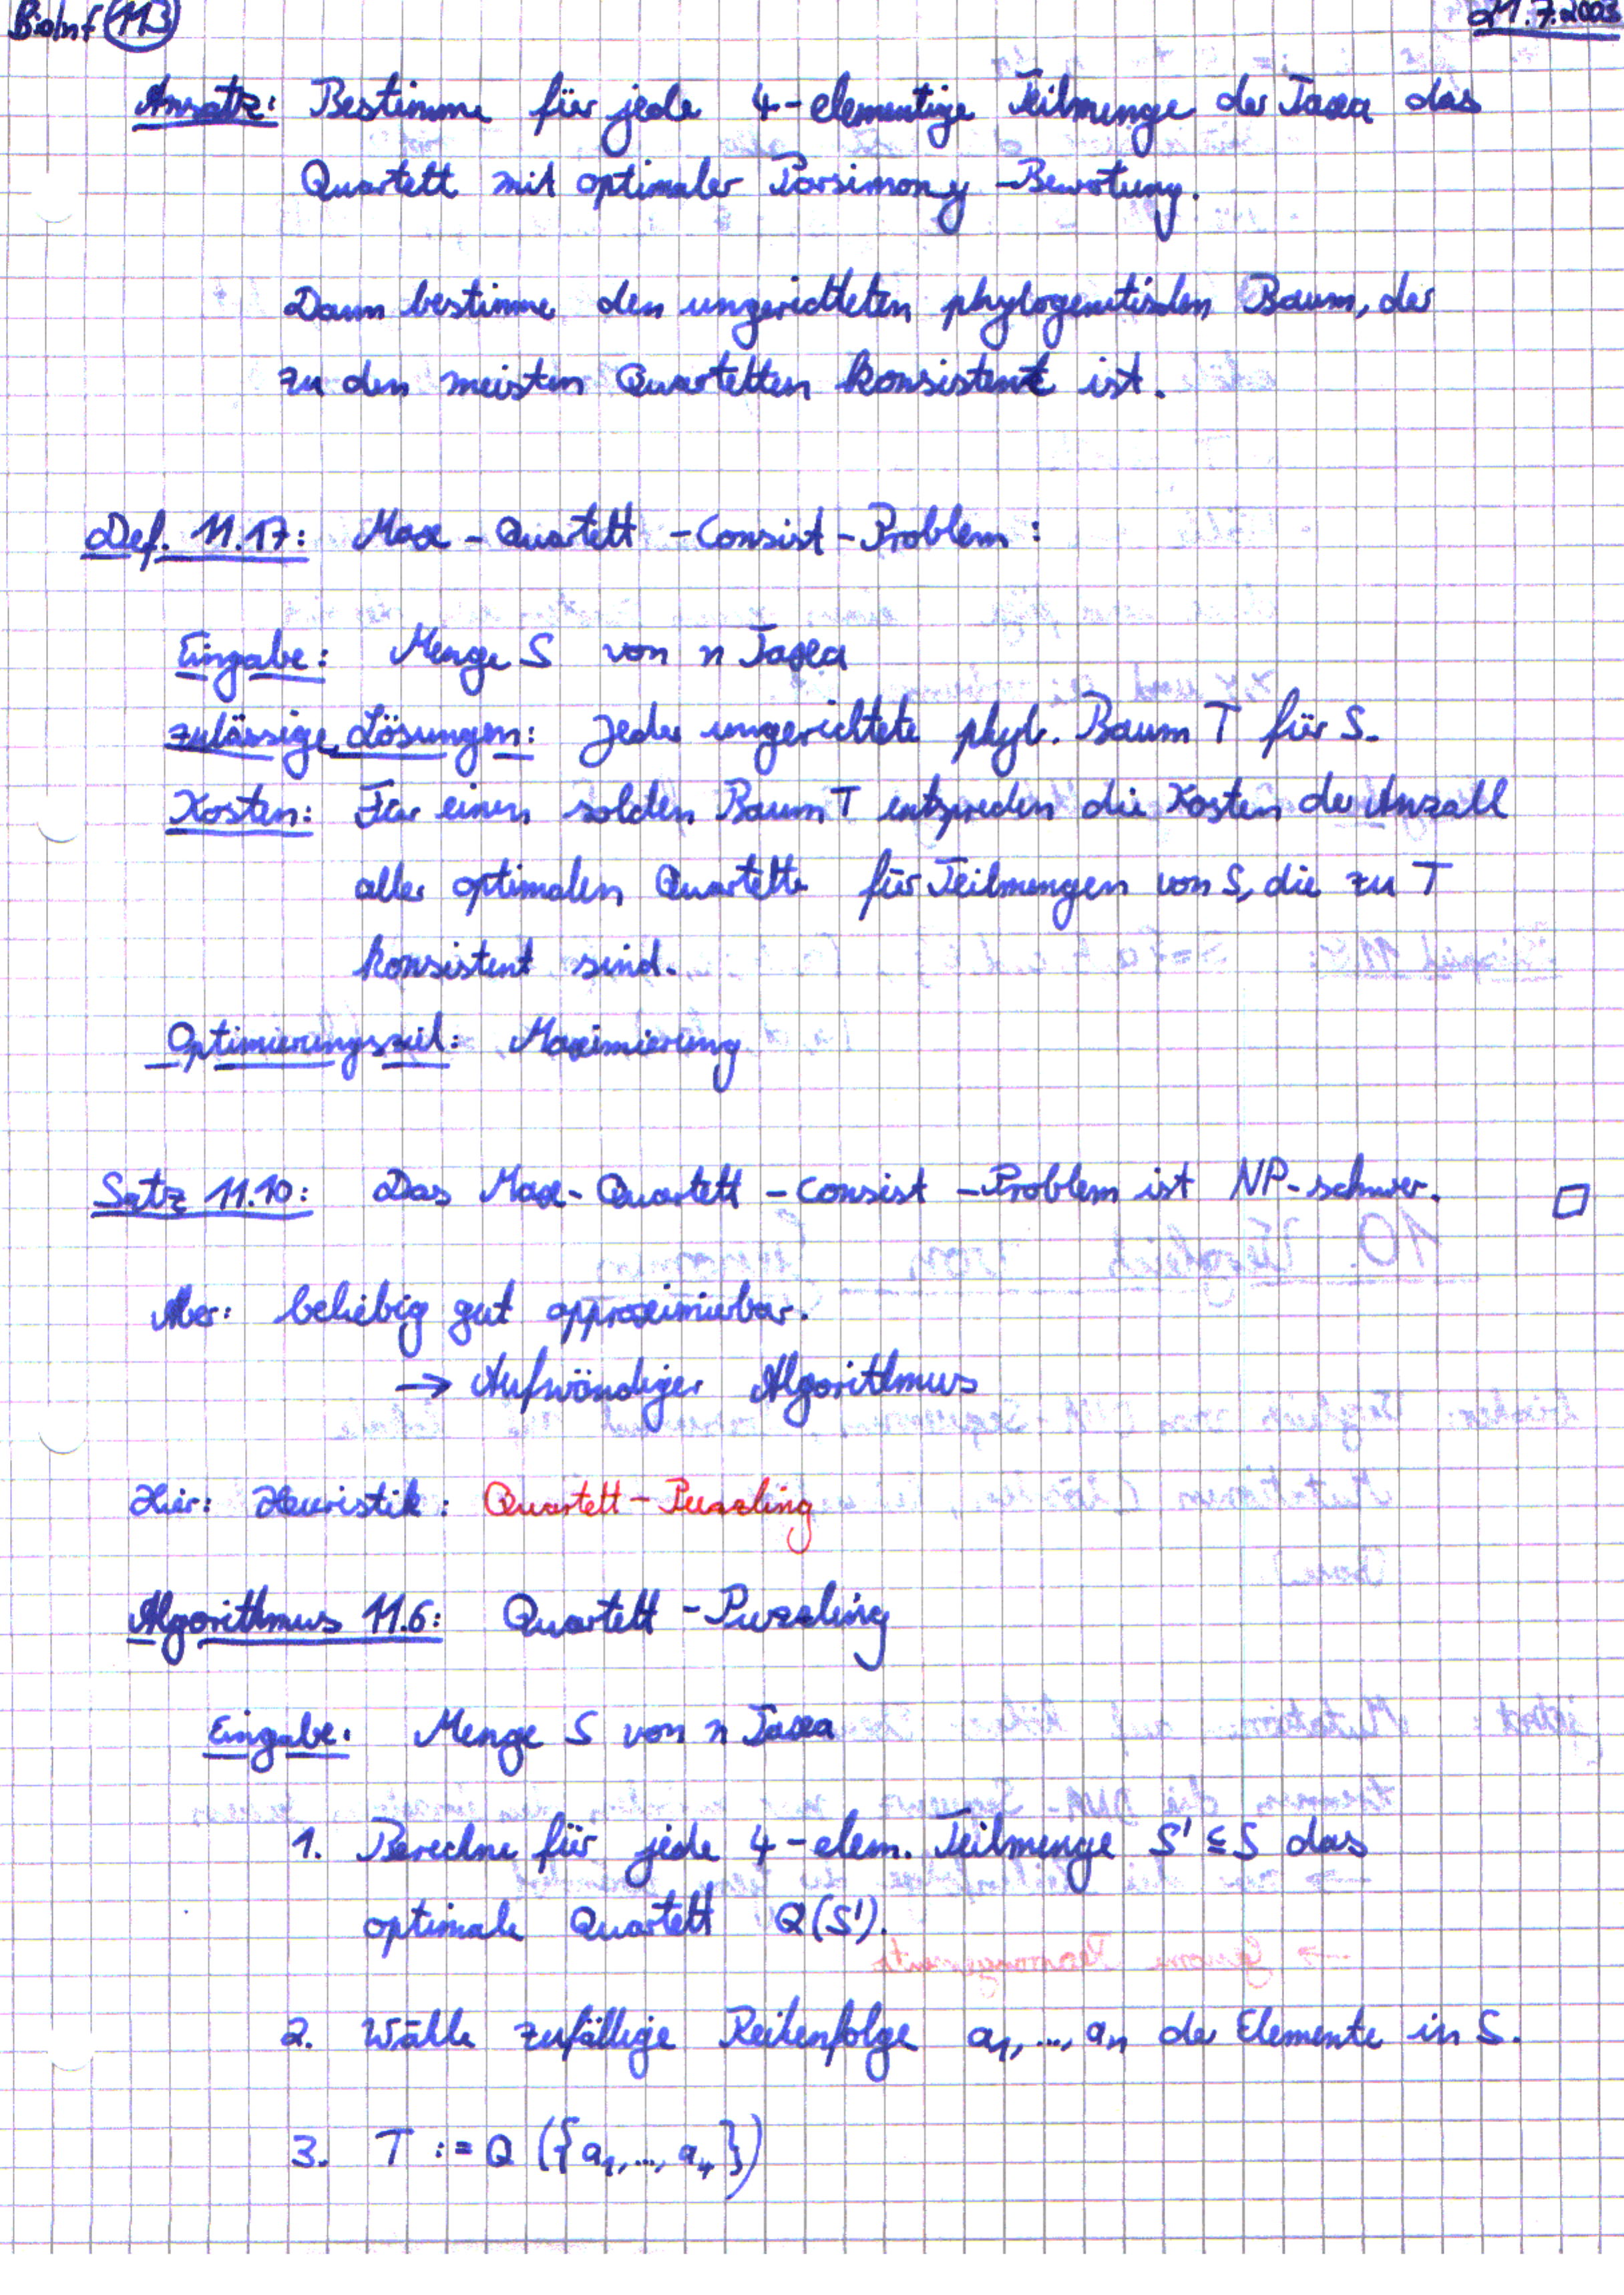 BioInf 113
21.7.2003
Ansatz: Bestimme für jede 4-elementige Teilmenge der Taxa das
Quartett mit optimaler Parsimony-Bewertung.
Dann bestimme den ungerichteten phylogenetischen Baum, der
zu den meisten Quartetten konsistent ist.
Def. 11.17: Max-Quartett-Consist-Problem:
Eingabe: Menge S von n Taxa
zulässige Lösungen: Jeder ungerichtete phyl. Baum T für S.
Kosten: Für einen solchen Baum T entsprechen die Kosten der Anzahl
aller optimalen Quartette für Teilmengen von S, die zu T
konsistent sind.
Optimierungsziel: Maximierung
Satz 11.10: Das Max-Quartett-Consist-Problem ist NP-schwer. □
Aber: beliebig gut approximierbar.
→ Aufwändiger Algorithmus
Hier: Heuristik: Quartett-Puzzling
Algorithmus 11.6: Quartett-Puzzling
Eingabe: Menge S von n Taxa
1. Berechne für jede 4-elem. Teilmenge S' ⊆ S das
optimale Quartett Q(S').
2. Wähle zufällige Reihenfolge a₁,..., aₙ der Elemente in S.
3. T := Q ({a₁,..., a₄})